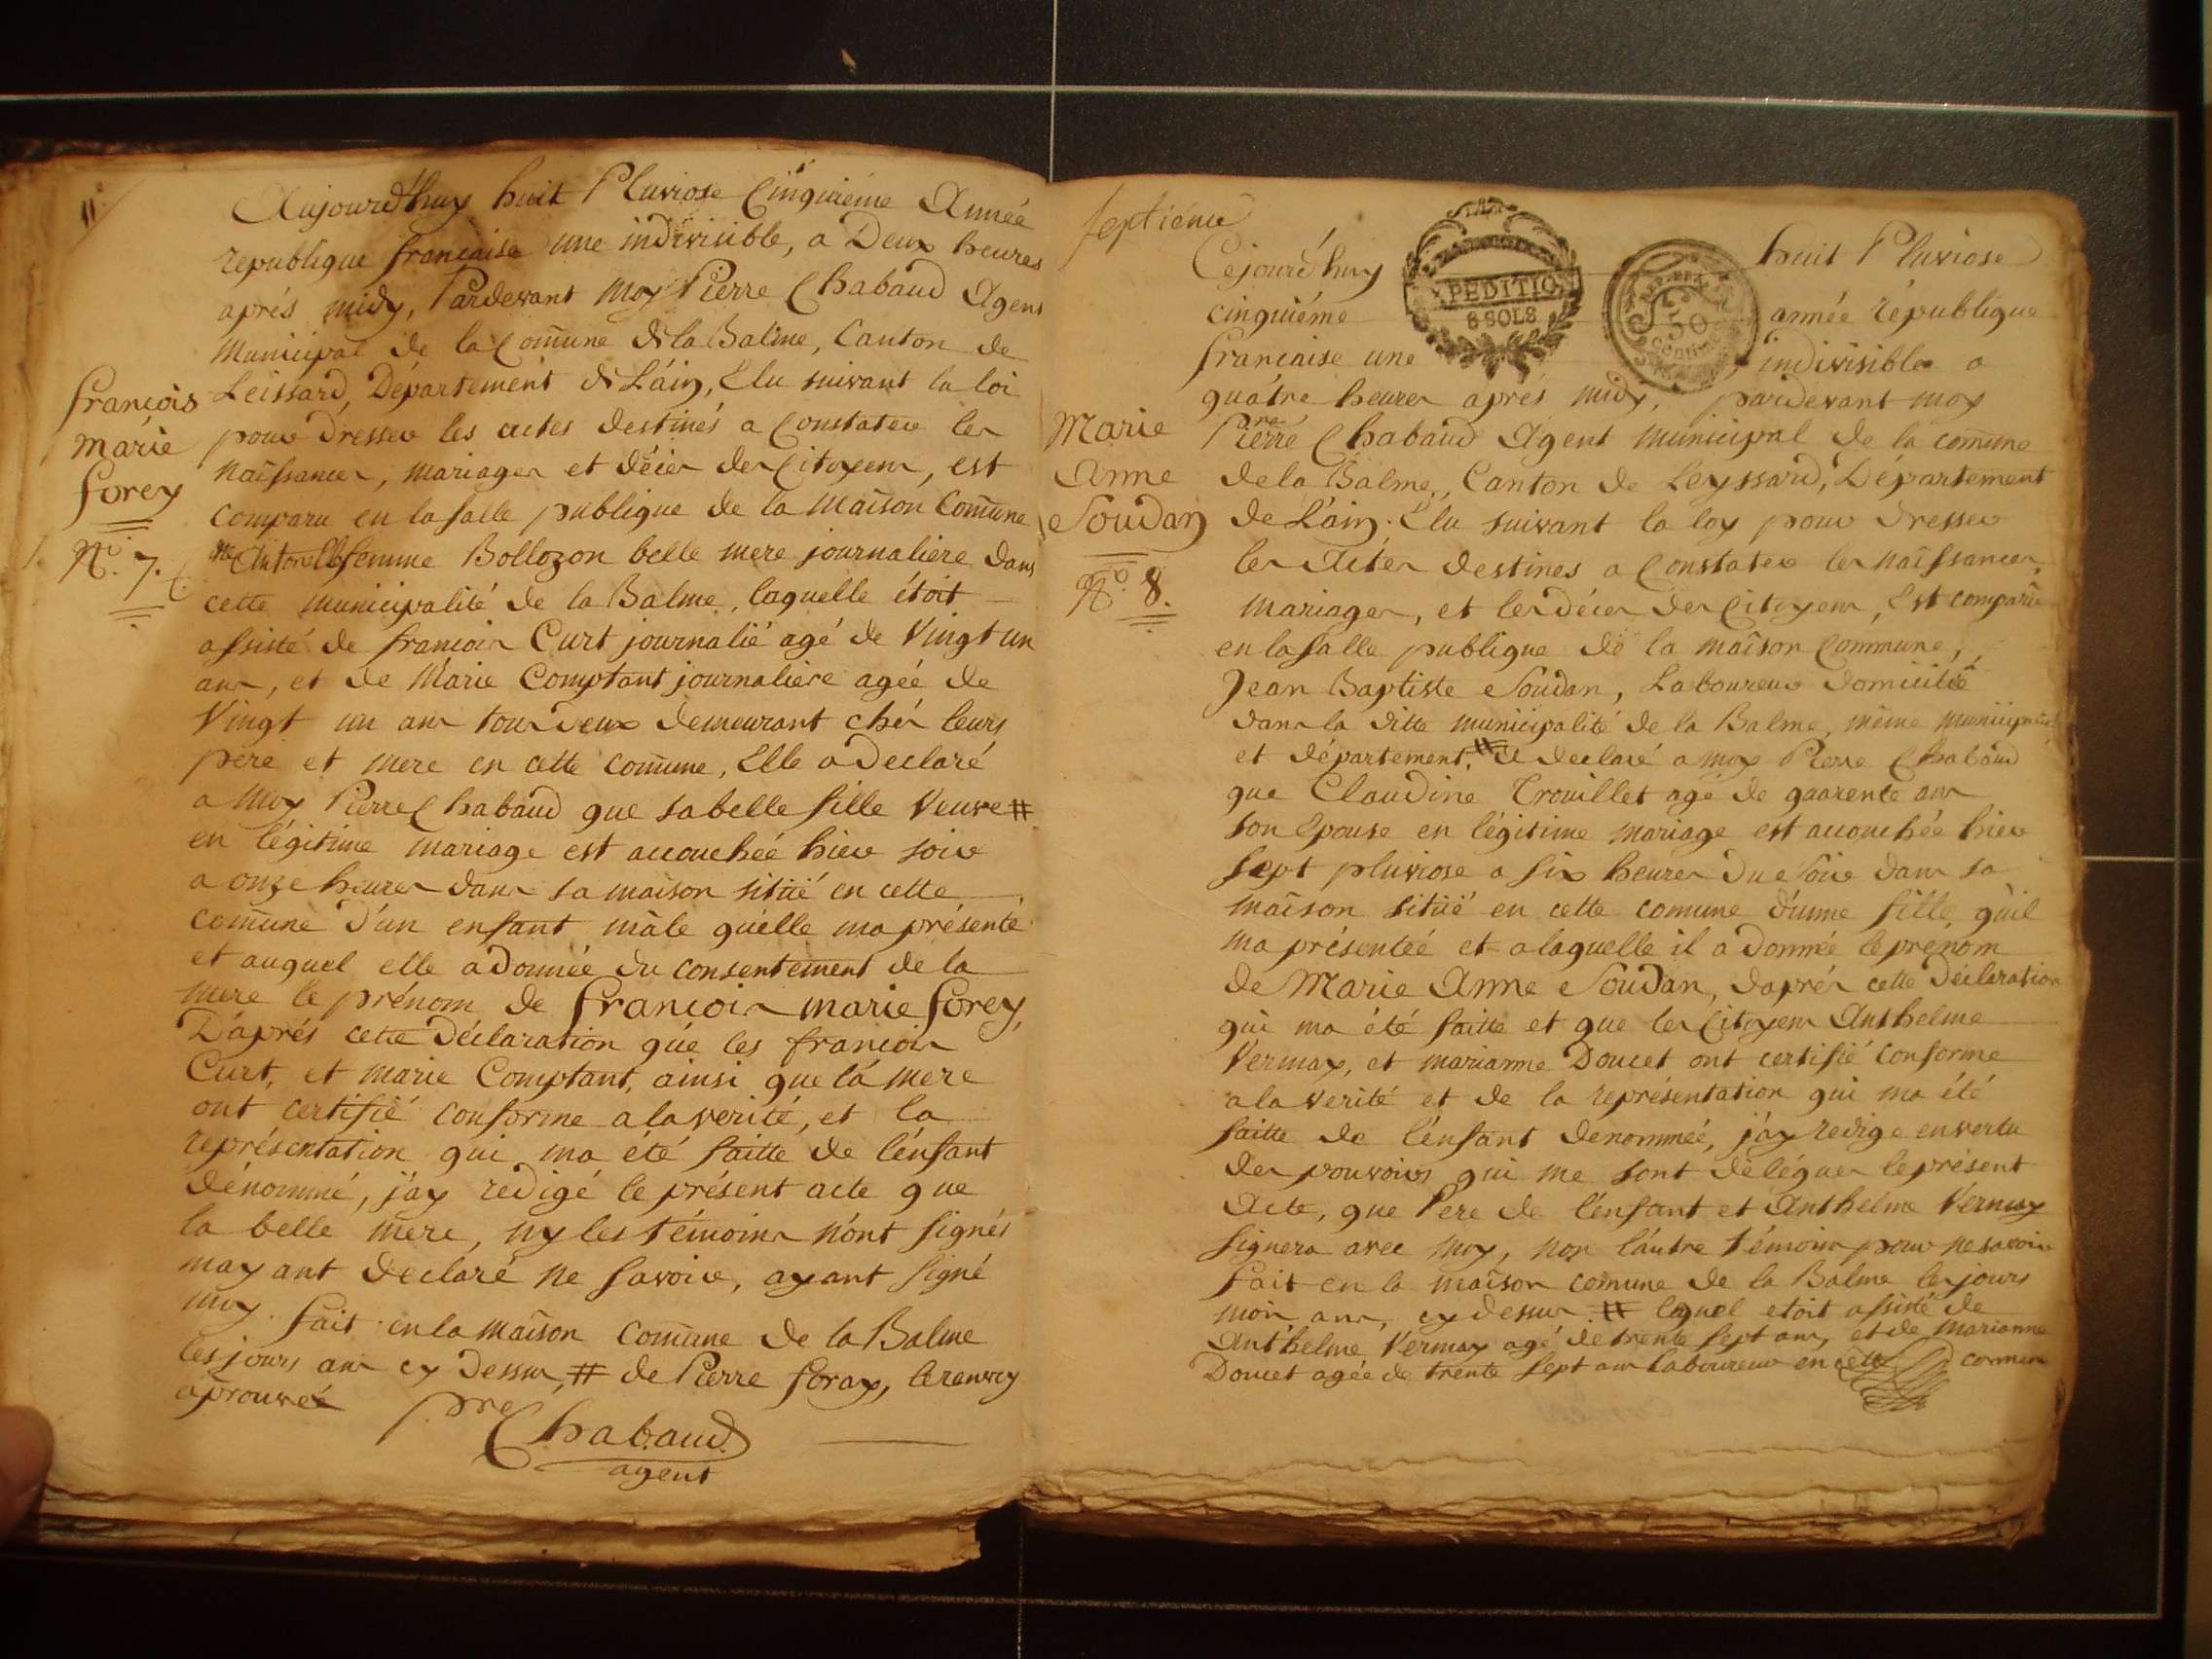 11.
Aujourdhuy huit Pluviose Cinquiéme Année
republique française une indivisible, a Deux heures
aprés midy, Pardevant Moy Pierre Chabaud Agent
Municipal de la Comune de la Balme, Canton de
Leissard, Département de L'áin, Elu suivant la loi
pour dresser les actes destinés a Constater les
naissances, mariages et décés des Citoyens, est
comparu en la salle publique de la Maison Comune
femme Bollozon belle mere journaliere dans
cette municipalité de la Balme, laquelle étoit
assisté de francois Curt journalié agé de Vingt un
ans, et de Marie Comptant journaliere agée de
Vingt un ans tous deux demeurant chés leurs
pere et mere en cette comune, Elle a Declaré
a Moy Pierre Chabaud que sa belle fille Veuve #
en légitime mariage est accouchéé hier soir
a onze heures dans sa maison sitüé en cette
comune d'un enfant mâle qu'elle ma présenté
et auquel elle a donnée du consentement de la
mere le prénom de francois marie forey,
D'aprés cette Déclaration qúe les francois
Curt, et marie Comptant, ainsi que lá mere
ont certifié conforme a la verité, et la
représentation qui ma été faitte de l'enfant
dénommé, j'ay redigé le présent acte que
la belle mere, ny les témoins n'ont signés
mayant déclaré ne savoir, ayant signé
moy. fait en la Maison Comune de la Balme
les jours ans cy dessus, # de Pierre foray, le renvoy
aprouvéé
Pre Chabaud
agent
françois
marie
forey
N.o 7.
septiéme
EXPEDITION
8 SOLS
REP. FRA
50
centimes
Cejourd'huy huit Pluviose
cinquiéme année république
francaise une indivisible a
quátre heures aprés midy, pardevant moy
Pierre Chabaud Agent municipal de la comune
de la Balme, Canton de Leyssard, Département
de L'áin. Elu suivant la loy pour dresser
les Actes destines a Constater les naissances,
mariages, et les décés des Citoyens, Est comparu
en la salle publique de la maison Commune,
Jean Baptiste Soudan, Laboureur domicilié
dans la ditte municipalité de la Balme, même municipalité
et département, # a declaré a moy Pierre Chabaud
que Claudine Trouillet agé de quarente ans
son Epouse en légitime mariage est accouchéé hier
sept pluviose a six heures du Soir dans sa
maison sitüé en cette comune d'unne fille, qu'il
ma présentéé et a laquelle il a donnée le prenom
de Marie Anne Soudan, d'aprés cette Déclaration
qui ma été faitte et que les Citoyens Anthelme
Vermay, et marianne Doucet ont certifié conforme
a la verité et de la représentation qui ma été
faitte de l'enfant dénommée, j'ay redigé en vertu
des pouvoirs qui me sont délégués le présent
Acte, que Pere de l'enfant et Anthelme Vermay
signera avec moy, non l'autre témoin pour ne savoir
fait en la maison comune de la Balme les jours
mois ans, cy dessus # lequel etoit assisté de
Anthelme Vermay agé de trente sept ans, et de marianne
Doucet agée de trente sept ans laboureur en cette comune
Marie
Anne
Soudan
N.o 8.